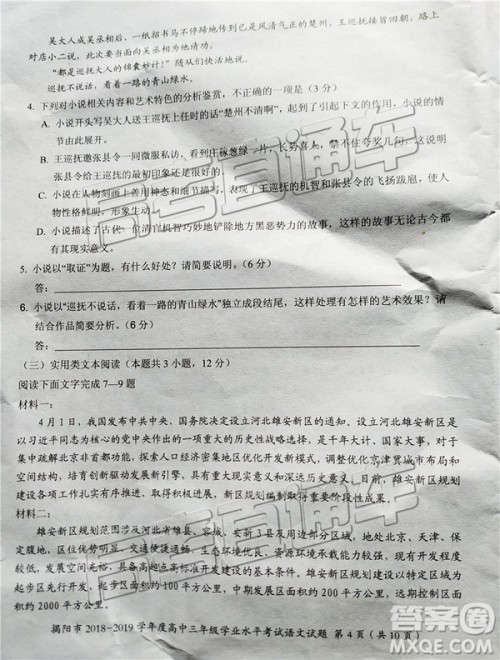 吴大人成吴丞相后，一纸招书马不停蹄地传到已是风清气正的楚州，王巡抚接旨回朝。路上
对店小二说，此次要当面向吴丞相为张县令请功。
“都是巡抚大人的锦囊妙计！”随从们议论说。
巡抚不说话，看着一路的青山绿水。
4. 下列对小说相关内容和艺术特色的分析鉴赏，不正确的一项是（3 分）
A. 小说开头写吴大人送王巡抚上任时一再提醒“楚州不清啊”，吸引读者，引起下文的作用，小说的情
节由此展开。
B. 王巡抚邀张县令一同微服私访，看到庄稼葱绿一片，长势喜人，禁不住夸奖几句，这说明
张县令给王巡抚的最初印象还是不错的。
C. 小说在人物刻画上善用神态和细节描写，王巡抚的机智和张县令的飞扬跋扈，使人物
性格鲜明，形象生动。
D. 小说描述了古代一位清官机智巧妙地铲除地方黑恶势力的故事，这样的故事无论古今都
有其现实意义。
5. 小说以“取证”为题，有什么好处？请简要说明。（6 分）
答：
6. 小说以“巡抚不说话，看着一路的青山绿水”独立成段结尾，有怎样的艺术效果？请
结合作品简要分析。（6 分）
答：
（三）实用类文本阅读（本题共 3 小题，12 分）
阅读下面文字完成 7—9 题
材料一：
4 月 1 日，我国发布中共中央、国务院决定设立河北雄安新区的通知。设立河北雄安新区
是以习近平同志为核心的党中央作出的一项重大的历史性战略选择，是千年大计、国家大事。对于
集中疏解北京非首都功能，探索人口经济密集地区优化开发新模式，调整优化京津冀城市布局和
空间结构，培育创新驱动发展新引擎，具有重大现实意义和深远历史意义。
材料二：
雄安新区规划范围涉及河北省雄县、容城、安新 3 县及周边部分区域，地处北京、天津、保
定腹地，区位优势明显、交通便捷通畅、生态环境优良、资源环境承载能力较强，现有开发程度
较低，发展空间充裕，具备高起点高标准开发建设的基本条件。雄安新区规划建设以特定区域为
起步区先行开发，起步区面积约 100 平方公里，中期发展区面积约 200 平方公里，远期控制区
面积约 2000 平方公里。
揭阳市 2018-2019 学年度高中三年级学业水平考试语文试题 第 4 页（共 10 页）
高考直通车
高考直通车
答案圈